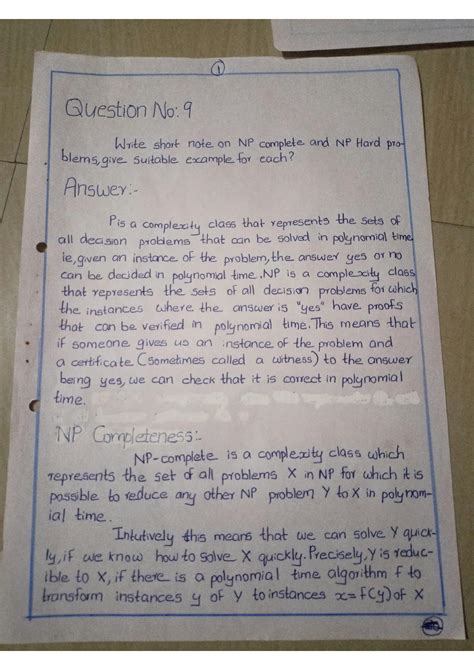 1
Question No: 9
Write short note on NP complete and NP Hard pro-
blems, give suitable example for each?
Answer:-
P is a complexity class that represents the sets of
all decision problems that can be solved in polynomial time
ie, given an instance of the problem, the answer yes or no
can be decided in polynomial time. NP is a complexity class
that represents the sets of all decision problems for which
the instances where the answer is "yes" have proofs
that can be verified in polynomial time. This means that
if someone gives us an instance of the problem and
a certificate (sometimes called a witness) to the answer
being yes, we can check that it is correct in polynomial
time.
NP Completeness:-
NP-complete is a complexity class which
represents the set of all problems X in NP for which it is
possible to reduce any other NP problem Y to X in polynom-
ial time.
Intutively this means that we can solve Y quick-
ly, if we know how to solve X quickly. Precisely, Y is reduc-
ible to X, if there is a polynomial time algorithm f to
transform instances y of Y to instances x=f(y) of X